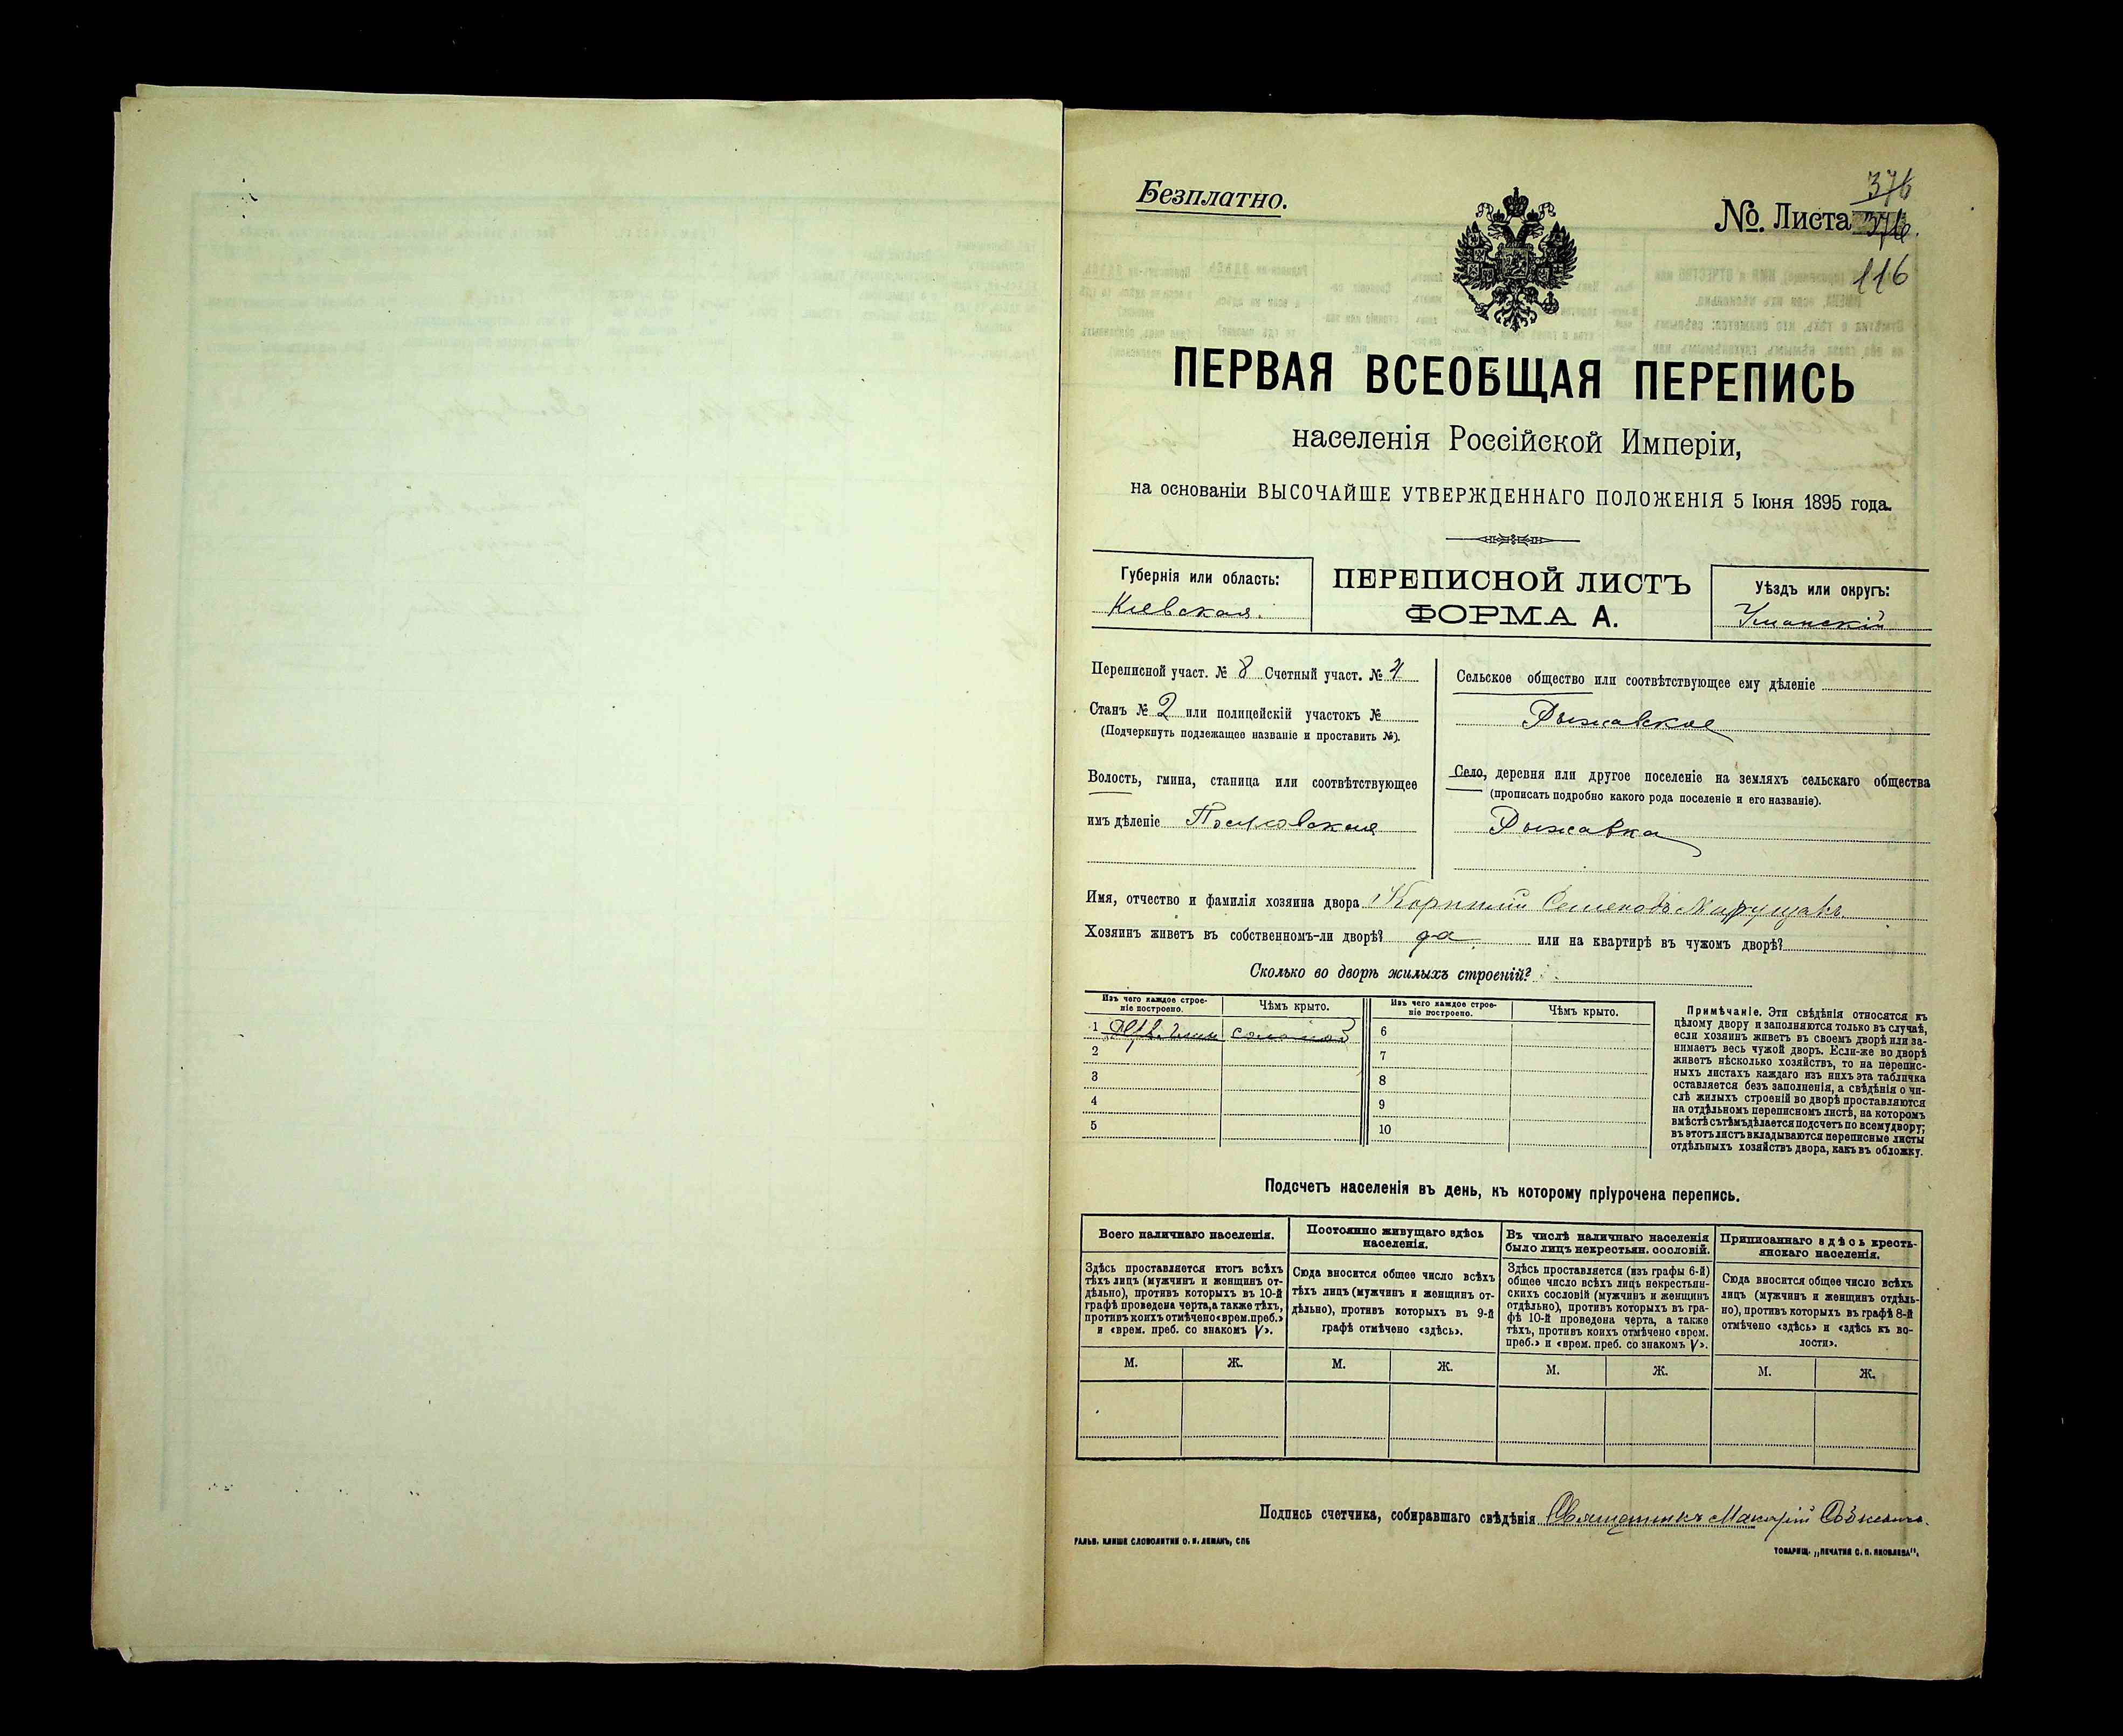 Безплатно.
376
No. Листа 376.
116
ПЕРВАЯ ВСЕОБЩАЯ ПЕРЕПИСЬ
населенія Россійской Имперіи,
на основаніи ВЫСОЧАЙШЕ УТВЕРЖДЕННАГО ПОЛОЖЕНІЯ 5 Іюня 1895 года.
Губернія или область:
Кіевская.
ПЕРЕПИСНОЙ ЛИСТЪ
ФОРМА А.
Уѣздъ или округъ:
Уманскій
Переписной участ. № 8 Счетный участ. № 4
Станъ № 2 или полицейскій участокъ №
(Подчеркнуть подлежащее названіе и проставить №).
Волость, гмина, станица или соотвѣтствующее
имъ дѣленіе
Сельское общество или соотвѣтствующее ему дѣленіе
Рыжавское
Село, деревня или другое поселеніе на земляхъ сельскаго общества
(прописать подробно какого рода поселеніе и его названіе).
Рыжавка
Имя, отчество и фамилія хозяина двора Корнилій Семеновъ Марущакъ
Хозяинъ живетъ въ собственномъ-ли дворѣ? да или на квартирѣ въ чужомъ дворѣ?
Сколько во дворѣ жилыхъ строеній?
Изъ чего каждое строе-
ніе построено.
Чѣмъ крыто.
Изъ чего каждое строе-
ніе построено.
Чѣмъ крыто.
1 соломой
2
3
4
5
6
7
8
9
10
Примѣчаніе. Эти свѣдѣнія относятся къ
цѣлому двору и заполняются только въ случаѣ,
если хозяинъ живетъ въ своемъ дворѣ или за-
нимаетъ весь чужой дворъ. Если-же во дворѣ
живетъ нѣсколько хозяйствъ, то на перепис-
ныхъ листахъ каждаго изъ нихъ эта табличка
оставляется безъ заполненія, а свѣдѣнія о чи-
слѣ жилыхъ строеній во дворѣ проставляются
на отдѣльномъ переписномъ листѣ, на которомъ
вмѣстѣ съ тѣмъ дѣлается подсчетъ по всему двору;
въ этотъ листъ вкладываются переписные листы
отдѣльныхъ хозяйствъ двора, какъ въ обложку.
Подсчетъ населенія въ день, къ которому пріурочена перепись.
Всего наличнаго населенія.
Здѣсь проставляется итогъ всѣхъ
тѣхъ лицъ (мужчинъ и женщинъ от-
дѣльно), противъ которыхъ въ 10-й
графѣ проведена черта, а также тѣхъ,
противъ коихъ отмѣчено «врем. преб.»
и «врем. преб. со знакомъ V».
М. Ж.
Постоянно живущаго здѣсь
населенія.
Сюда вносится общее число всѣхъ
тѣхъ лицъ (мужчинъ и женщинъ от-
дѣльно), противъ которыхъ въ 9-й
графѣ отмѣчено «здѣсь».
М. Ж.
Въ числѣ наличнаго населенія
было лицъ некрестьян. сословій.
Здѣсь проставляется (изъ графы 6-й)
общее число всѣхъ лицъ некрестьян-
скихъ сословій (мужчинъ и женщинъ
отдѣльно), противъ которыхъ въ гра-
фѣ 10-й проведена черта, а также
тѣхъ, противъ коихъ отмѣчено «врем.
преб.» и «врем. преб. со знакомъ V».
М. Ж.
Приписаннаго здѣсь кресть-
янскаго населенія.
Сюда вносится общее число всѣхъ
лицъ (мужчинъ и женщинъ отдѣль-
но), противъ которыхъ въ графѣ 8-й
отмѣчено «здѣсь» и «здѣсь къ во-
лости».
М. Ж.
Подпись счетчика, собиравшаго свѣдѣнія Священникъ Макарій
ГАЛЬВ. КЛИШЕ СЛОВОЛИТНИ О. И. ЛЕМАНЪ, СПБ
ТОВАРИЩ. „ПЕЧАТНЯ С. П. ЯКОВЛЕВА".